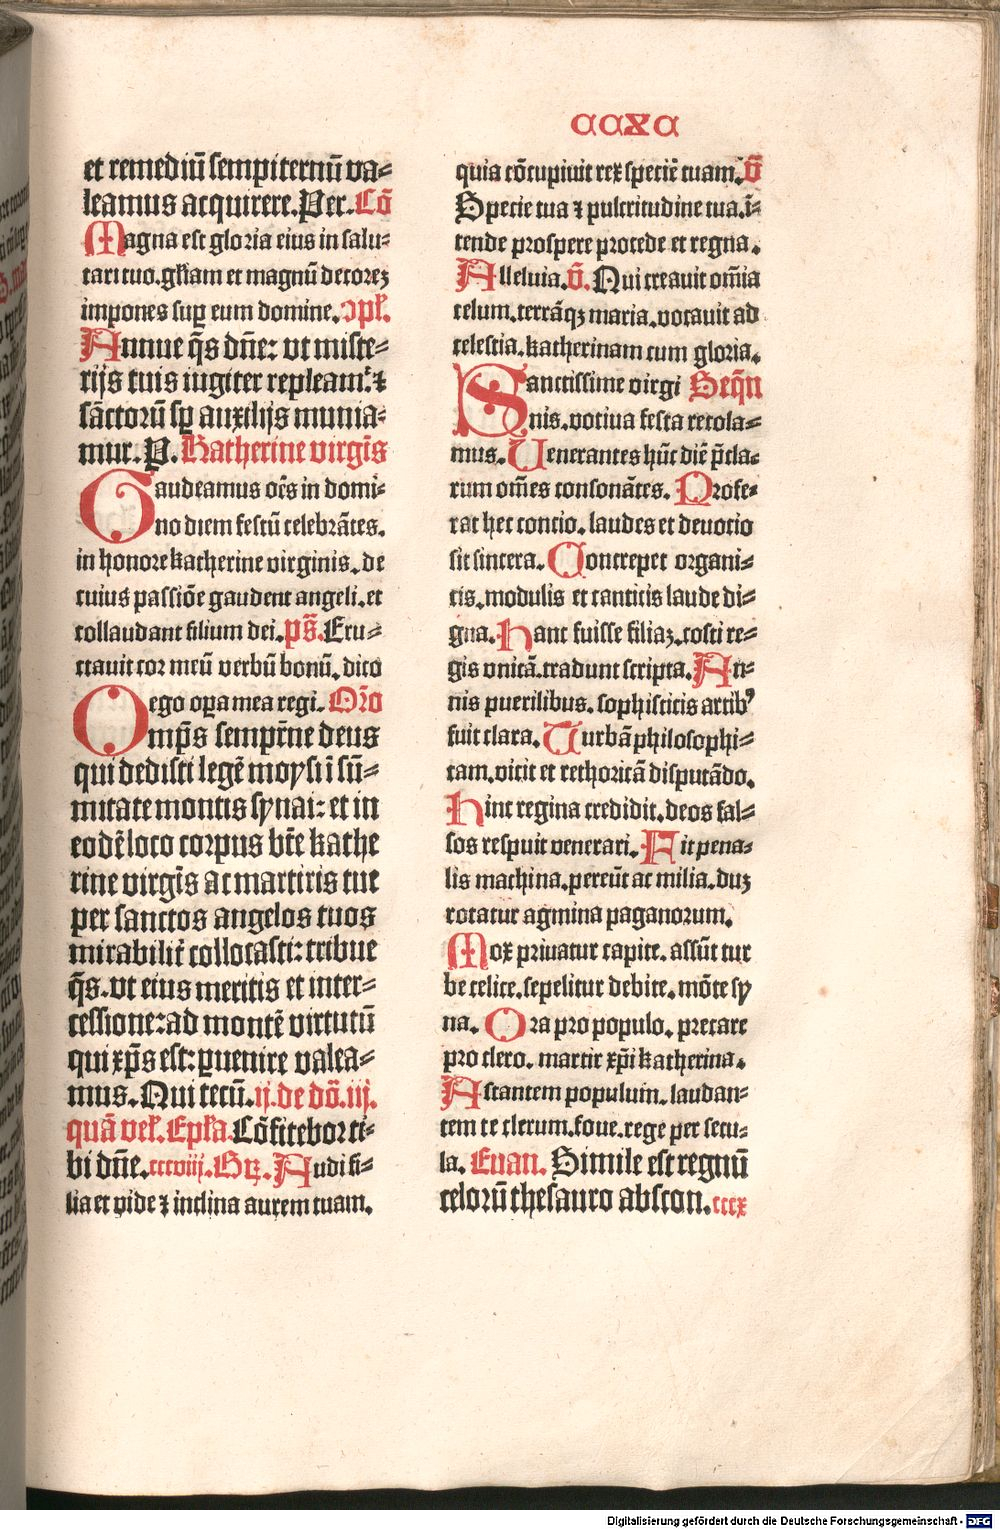 CCXC
et remediū sempiternū va⸗
leamus acquirere. Per. Cō
Magna est gloria eius in salu⸗
tari tuo. gl'iam et magnū decorez
impones sup eum domine. Cpl'.
Annue q̄s dn̄e: vt miste⸗
rijs tuis iugiter repleam̃: ⁊
sāctorū sp auxilijs munia⸗
mur. P. Katherine virgīs
Gaudeamus oēs in domi⸗
no diem festū celebrātes.
in honore katherine virginis. de
cuius passiōe gaudent angeli. et
collaudant filium dei. ps̄. Eru⸗
ctauit cor meū verbū bonū. dico
ego opa mea regi. Or̄o
Omps̄ sempr̄ne deus
qui dedisti legē moysi ī sū⸗
mitate montis synai: et in
eodē loco corpus bt̄e kathe
rine virgīs ac martiris tue
per sanctos angelos tuos
mirabilit̄ collocasti: tribue
q̄s. vt eius meritis et inter⸗
cessione: ad montē virtutū
qui xp̄s est: puenire valea⸗
mus. Qui tecū. ij. de dō. iij.
quā vel'. Epl'a. Cōfitebor ti⸗
bi dn̄e. cccviij. Gr̄. Audi fi⸗
lia et vide ⁊ inclina aurem tuam.
quia cōcupiuit rex speciē tuam. v̄
Specie tua ⁊ pulcritudine tua. ī⸗
tende prospere procede et regna.
Alleluia. v̄. Qui creauit om̄ia
celum. terrāqꝫ maria. vocauit ad
celestia. katherinam cum gloria.
Sanctissime virgi Seqn̄
nis. votiua festa recola⸗
mus. Uenerantes hūc diē p̄cla⸗
rum om̄es consonātes. Profe⸗
rat hec concio. laudes et deuocio
sit sincera. Concrepet organi⸗
cis. modulis et canticis laude di⸗
gna. Hanc fuisse filiaz. costi re⸗
gis vnicā. tradunt scripta. An⸗
nis puerilibus. sophisticis artibꝰ
fuit clara. Turbā philosophi⸗
cam. vicit et rethoricā disputādo.
Hinc regina credidit. deos fal⸗
sos respuit venerari. Fit pena⸗
lis machina. pereūt ac milia. duz
rotatur agmina paganorum.
Mox priuatur capite. assūt tur
be celice. sepelitur debite. mōte sy
na. Ora pro populo. precare
pro clero. martir xp̄i katherina.
Astantem populum. laudan⸗
tem te clerum. foue. rege per secu⸗
la. Euan. Simile est regnū
celorū thesauro abscon. cccx
Digitalisierung gefördert durch die Deutsche Forschungsgemeinschaft - DFG